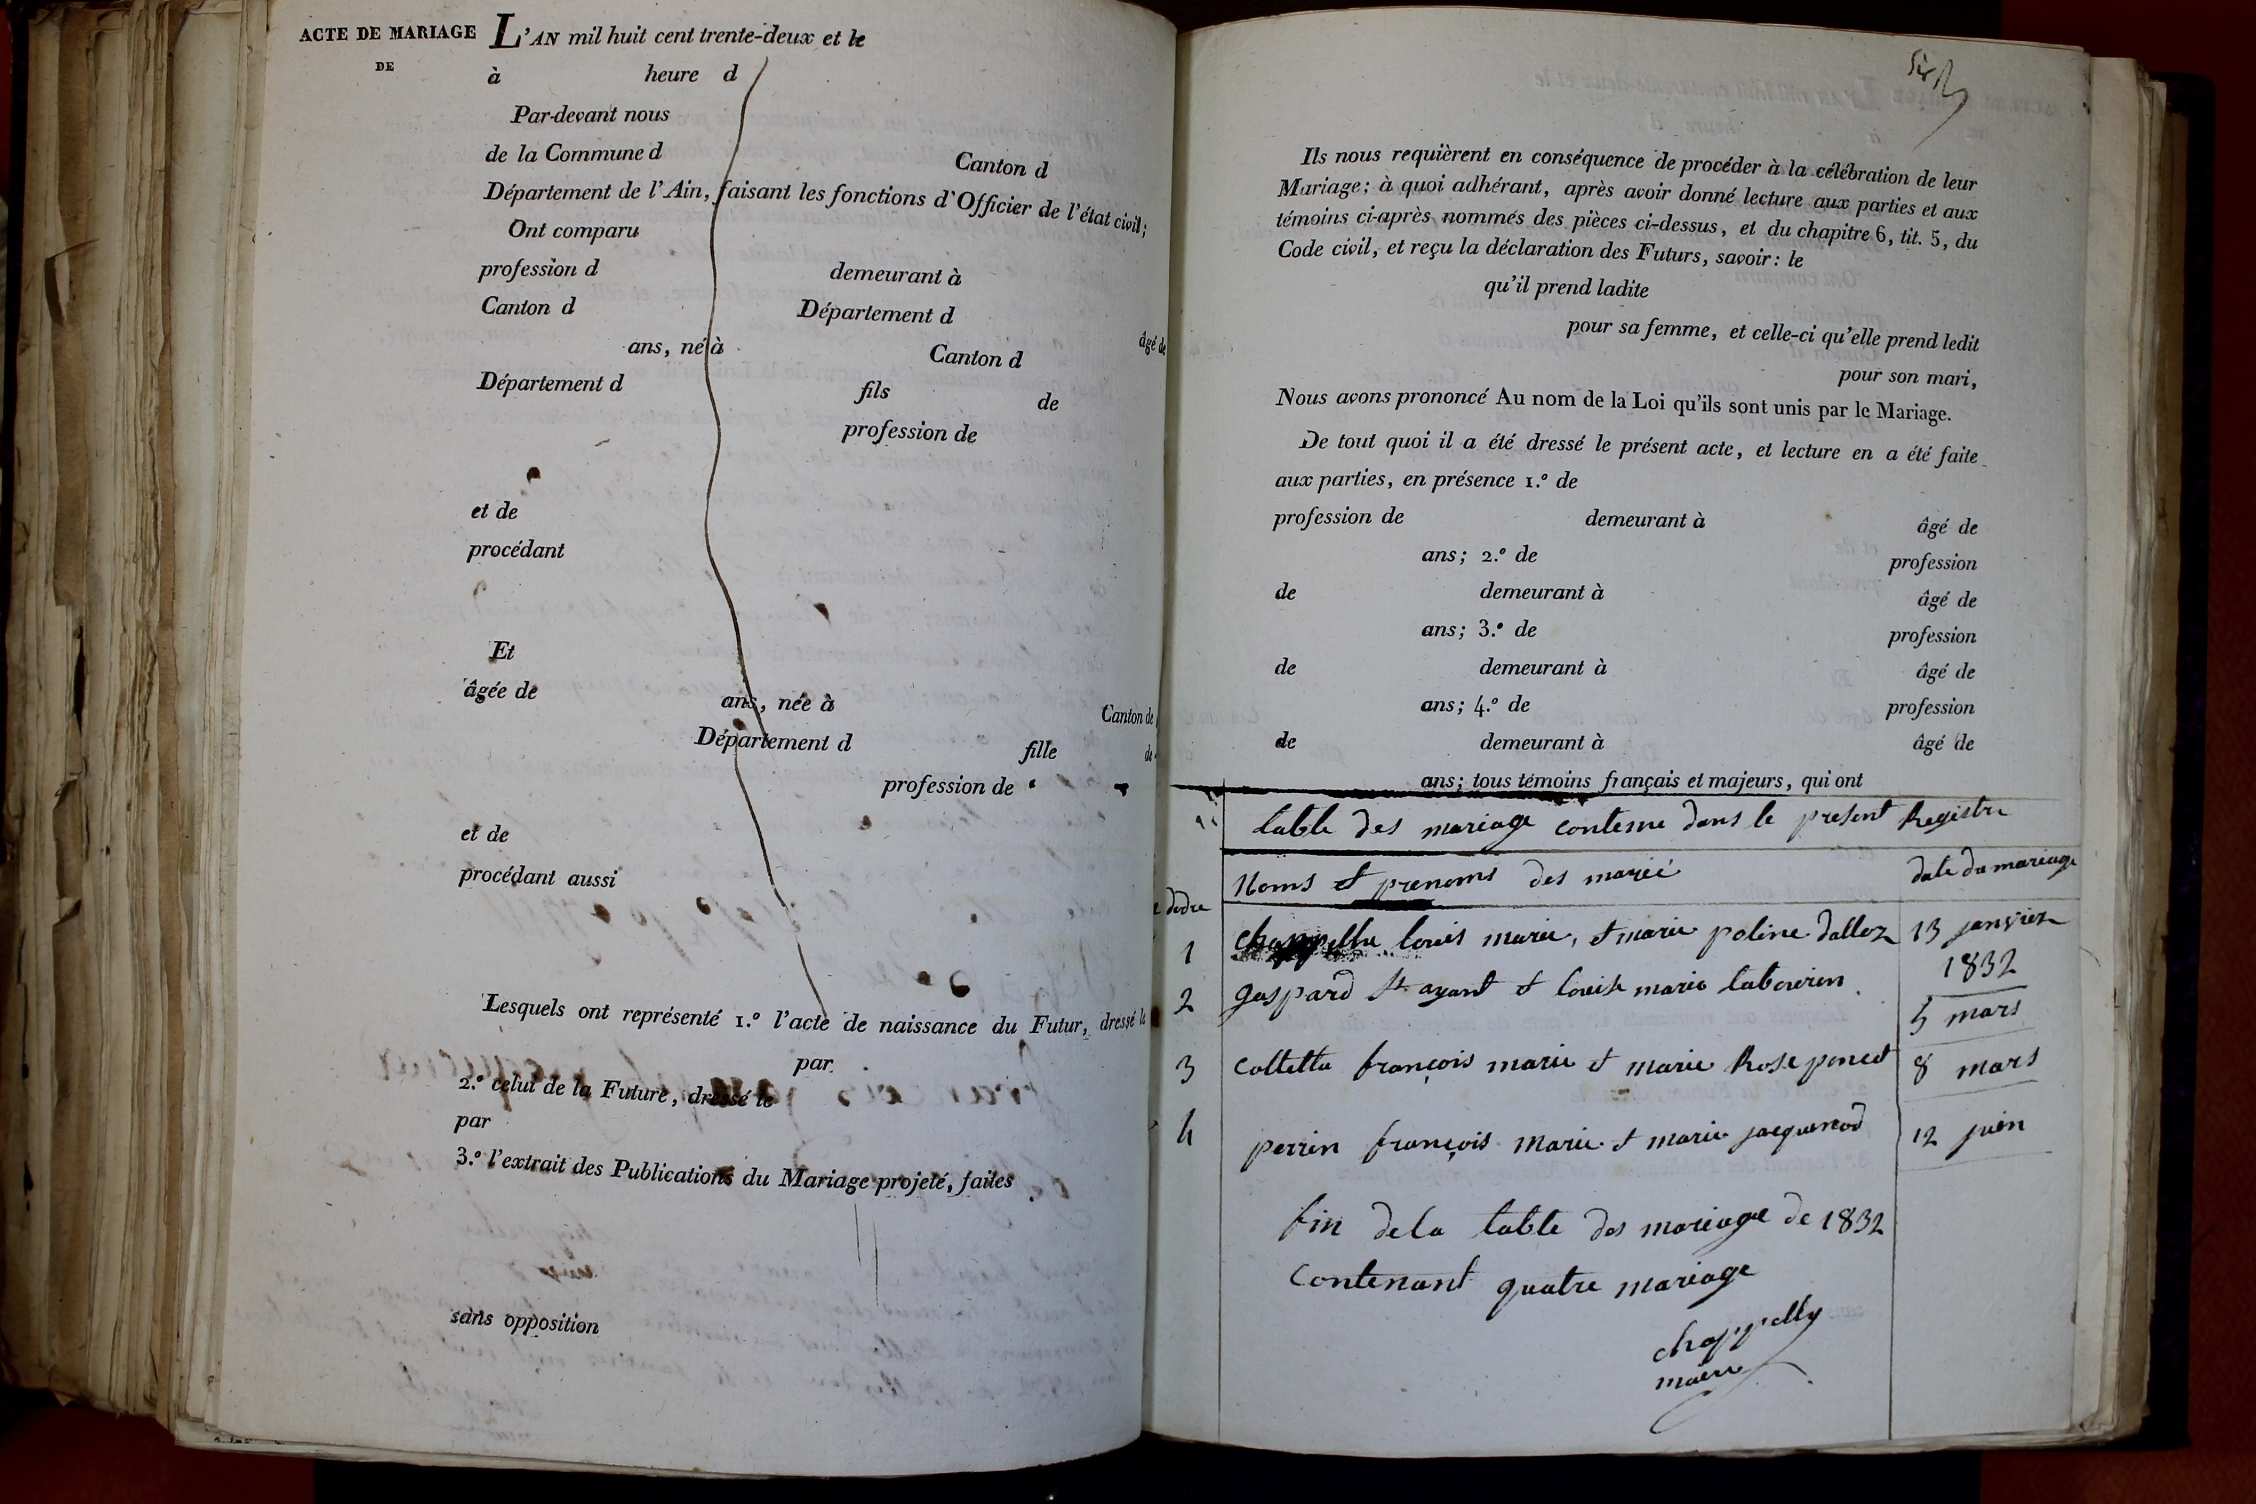 ACTE DE MARIAGE
DE
L'AN mil huit cent trente-deux et le
à heure d
Par-devant nous
de la Commune d Canton d
Département de l'Ain, faisant les fonctions d'Officier de l'état civil;
Ont comparu
profession d demeurant à
Canton d Département d âgé de
ans, né à Canton d
Département d fils de
profession de
et de
procédant
Et
âgée de ans, née à Canton de
Département d fille de
profession de
et de
procédant aussi
Lesquels ont représenté 1.º l'acte de naissance du Futur, dressé le
par
2.º celui de la Future, dressé le
par
3.º l'extrait des Publications du Mariage projeté, faites
sans opposition
Six
Ils nous requièrent en conséquence de procéder à la célébration de leur
Mariage; à quoi adhérant, après avoir donné lecture aux parties et aux
témoins ci-après nommés des pièces ci-dessus, et du chapitre 6, tit. 5, du
Code civil, et reçu la déclaration des Futurs, savoir: le
qu'il prend ladite
pour sa femme, et celle-ci qu'elle prend ledit
pour son mari,
Nous avons prononcé Au nom de la Loi qu'ils sont unis par le Mariage.
De tout quoi il a été dressé le présent acte, et lecture en a été faite
aux parties, en présence 1.º de
profession de demeurant à âgé de
ans; 2.º de profession
de demeurant à âgé de
ans; 3.º de profession
de demeurant à âgé de
ans; 4.º de profession
de demeurant à âgé de
ans; tous témoins français et majeurs, qui ont
table des mariage contenu dans le present Registre
Noms et prenoms des marié date du mariage
1 Chappellu louis marie, et marie poline dalloz 13 janvier
1832
2 gaspard St ayant et louise marie labourier 5 mars
3 Collettu françois marie et marie Rose poncet 8 mars
4 perrin françois marie et marie jacquenod 12 juin
fin de la table des mariage de 1832
Contenant quatre mariage
chappelly
maire